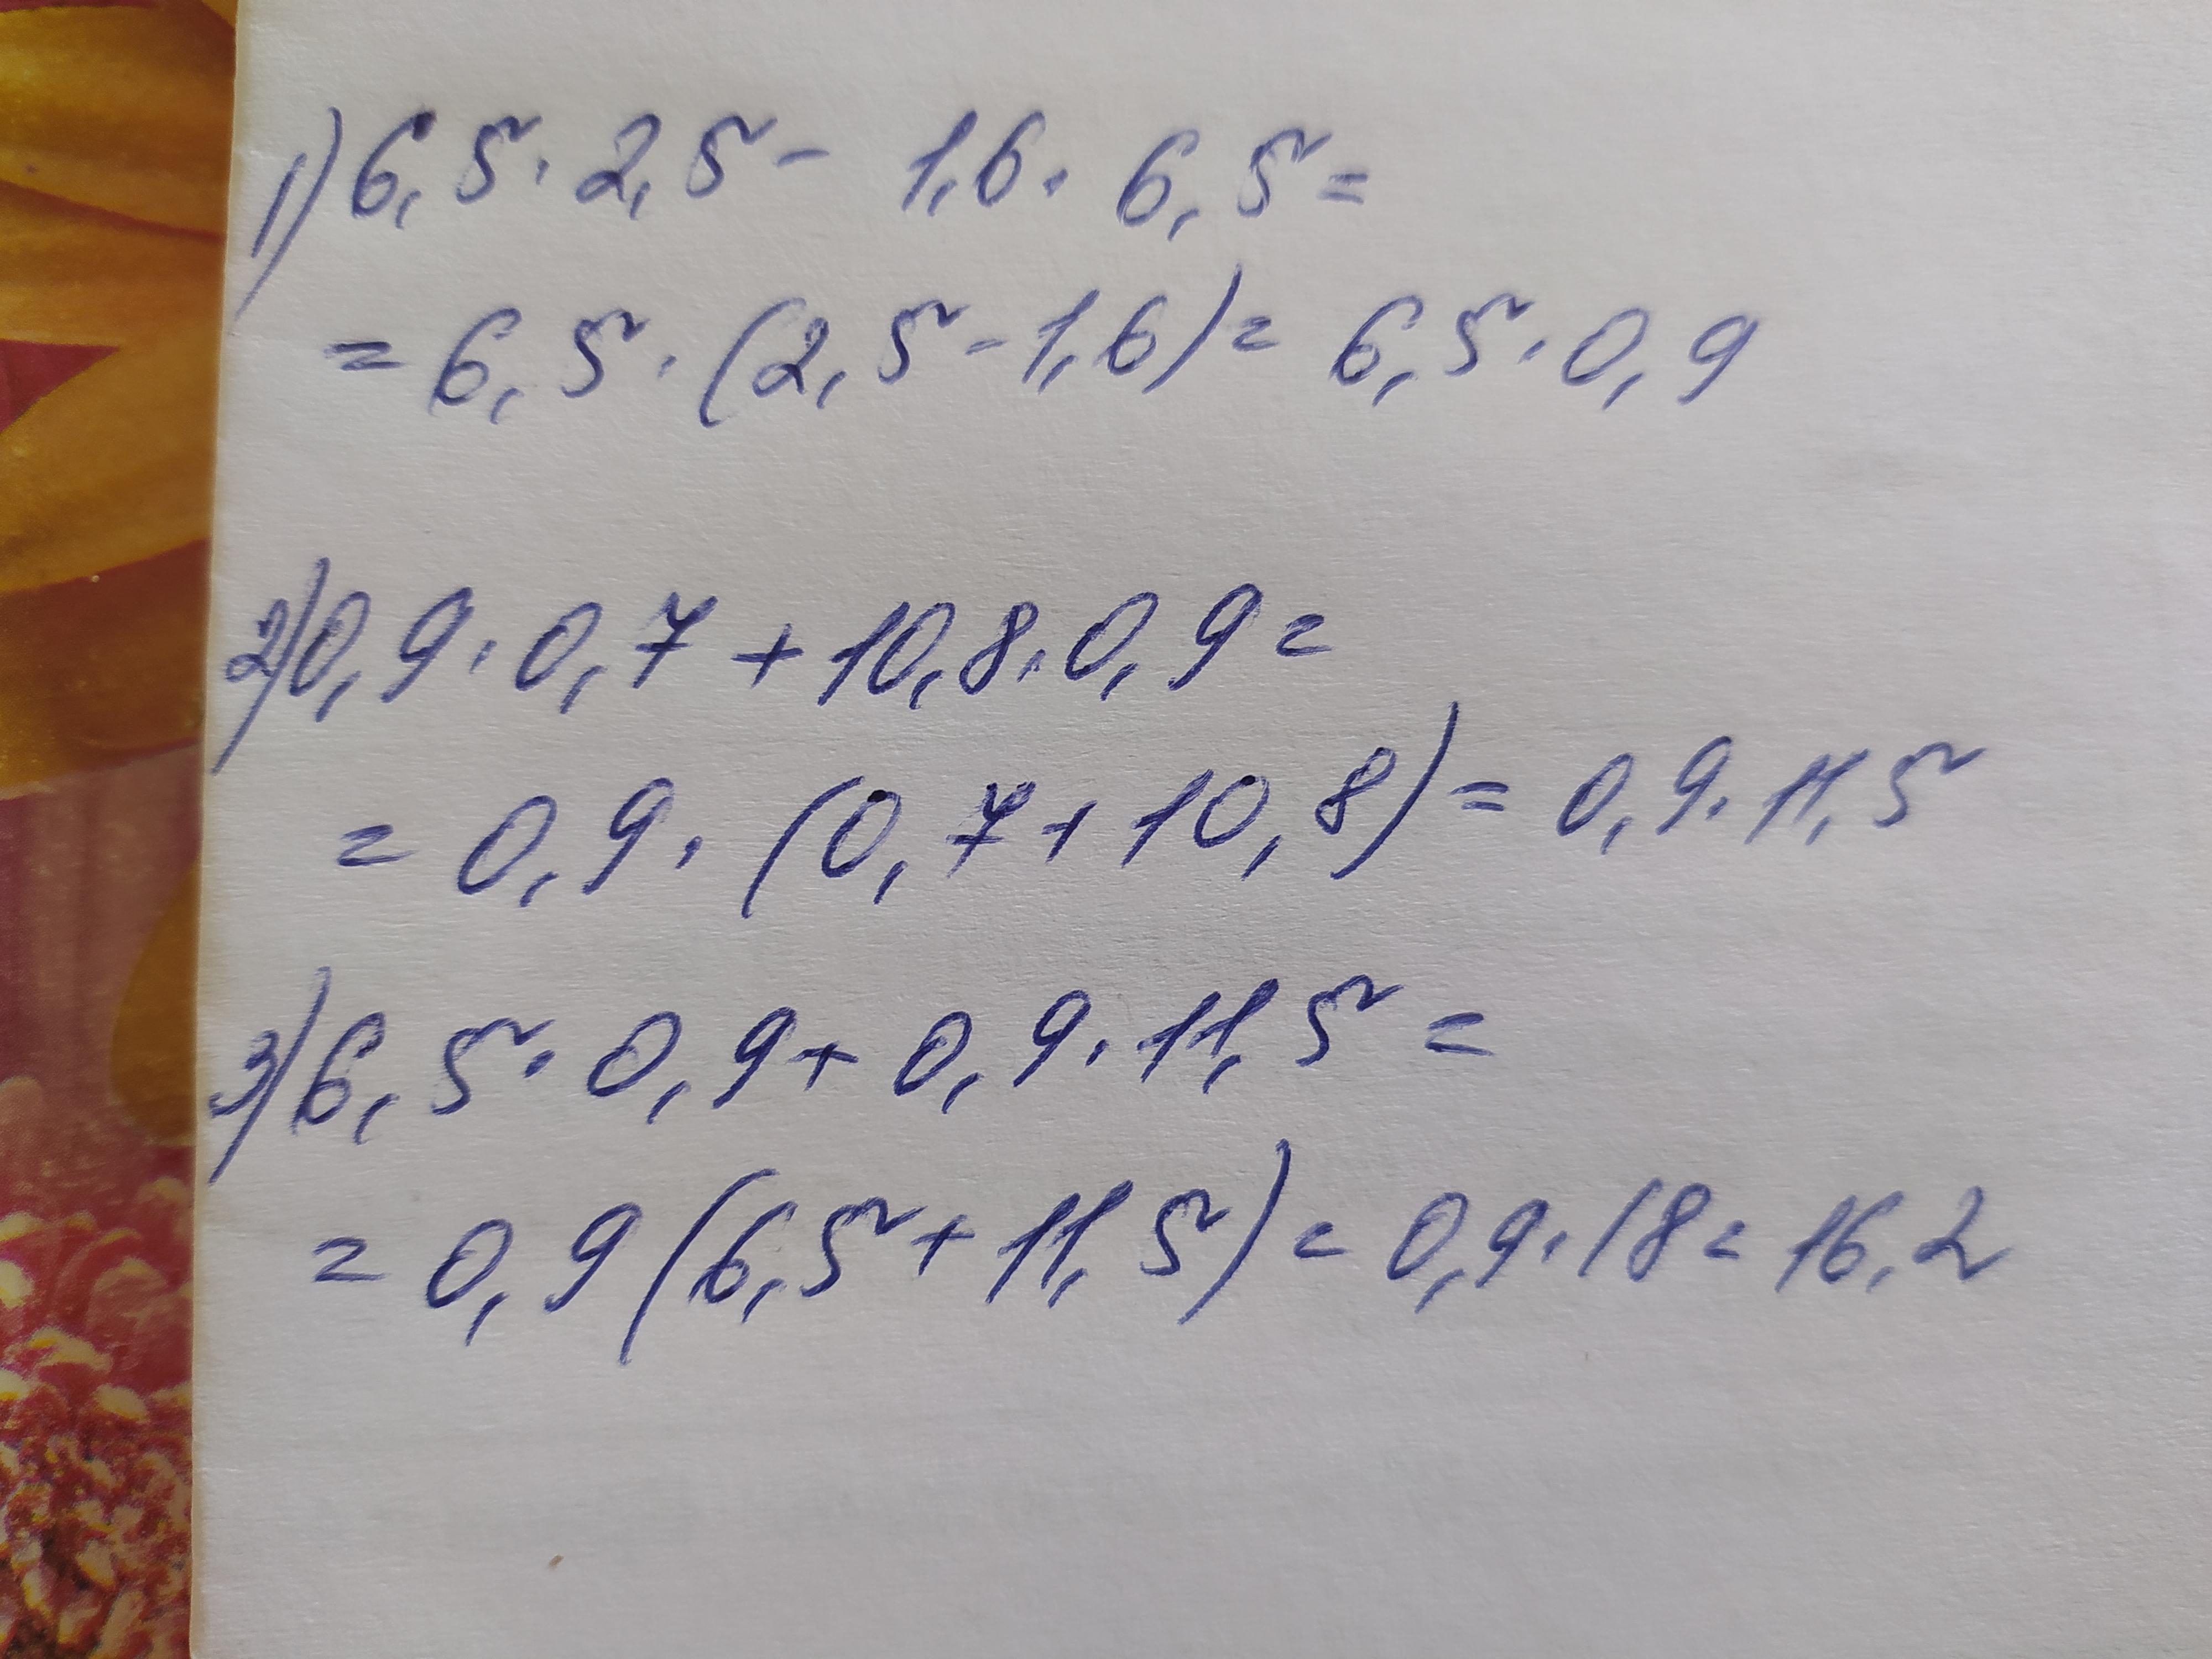 1) 6,5 · 2,5 - 1,6 · 6,5 =
= 6,5 · (2,5 - 1,6) = 6,5 · 0,9
2) 0,9 · 0,7 + 10,8 · 0,9 =
= 0,9 · (0,7 + 10,8) = 0,9 · 11,5
3) 6,5 · 0,9 + 0,9 · 11,5 =
= 0,9 (6,5 + 11,5) = 0,9 · 18 = 16,2